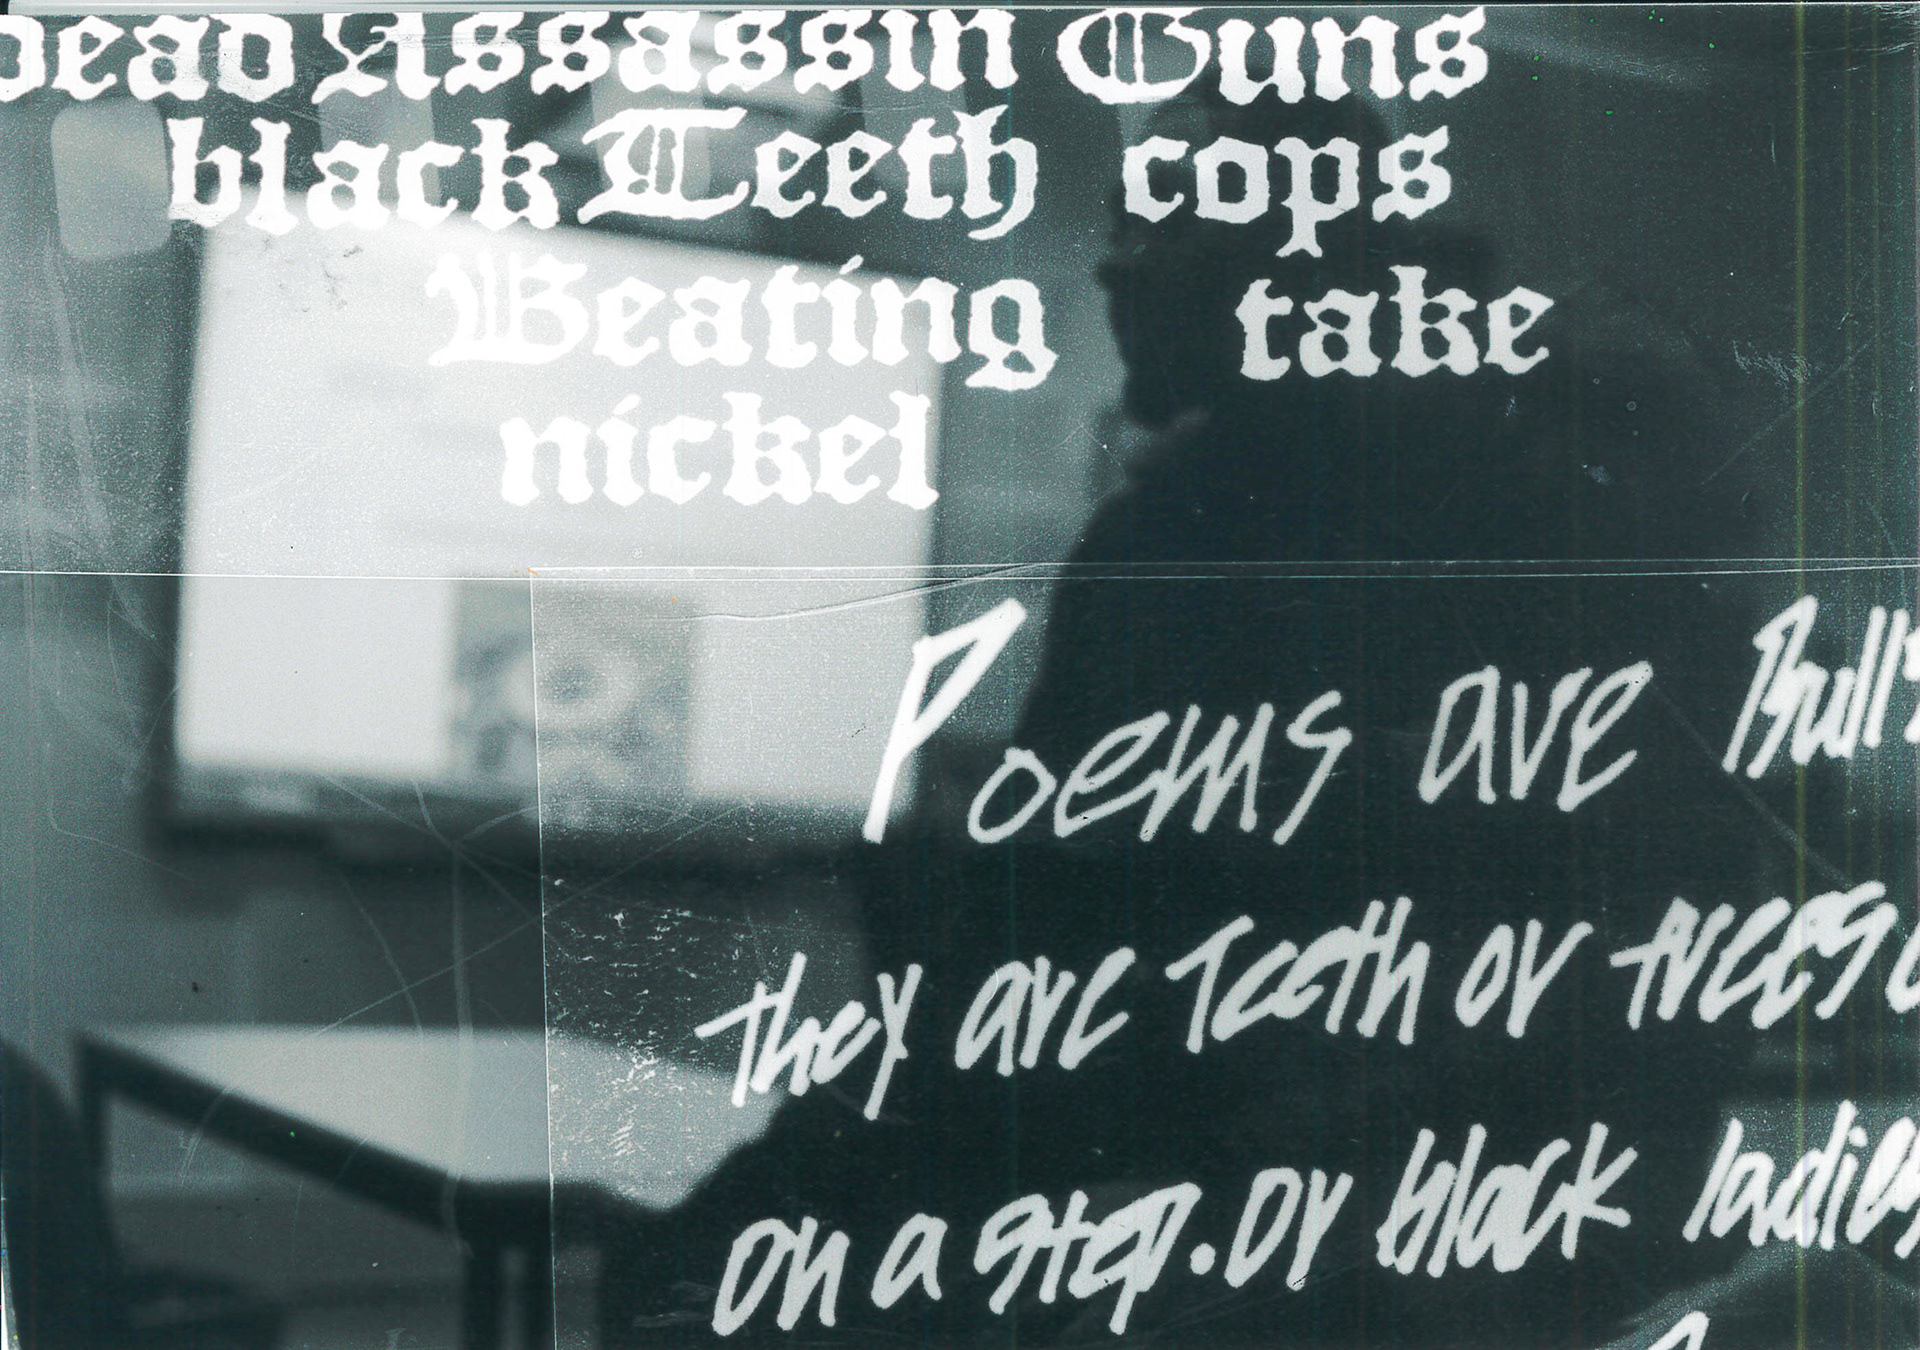 Dead Assassin Guns
black Teeth cops
Beating take
nickel
Poems are Bulls
they are Teeth or trees o
on a step. or black ladies